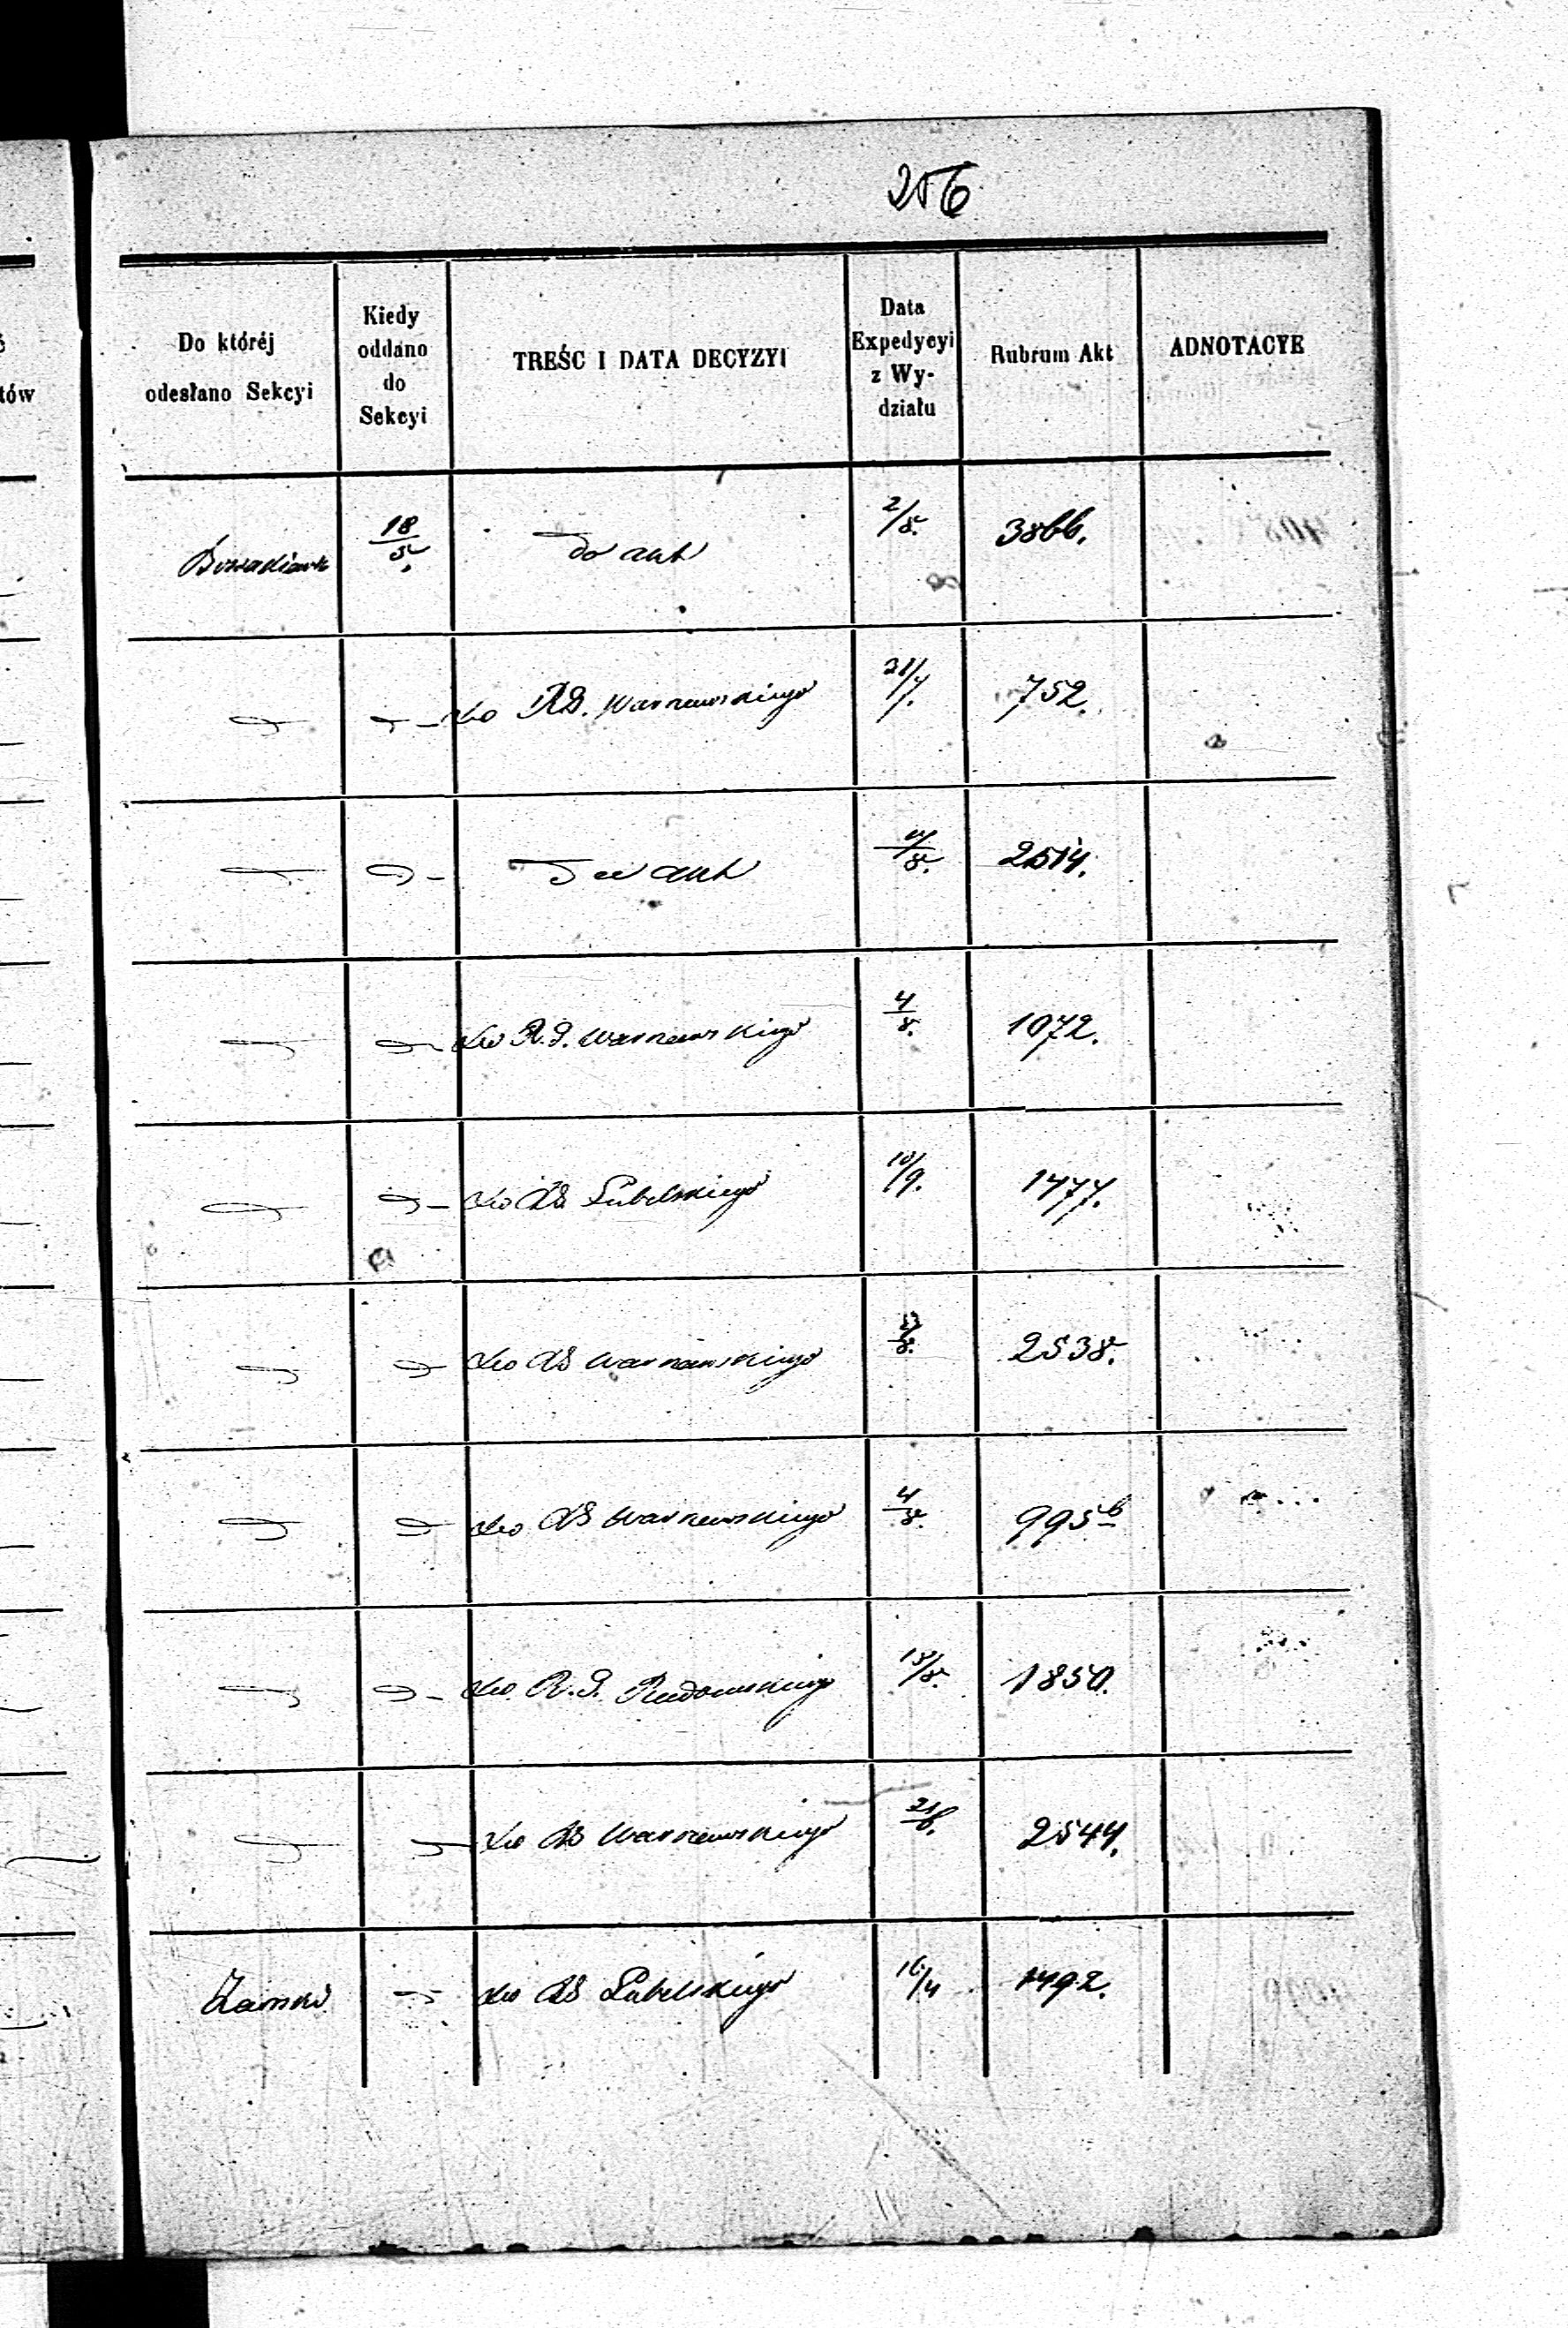 256
Do któréj
odesłano Sekcyi
Kiedy
oddano
do
Sekcyi
TREŚC I DATA DECYZYI
Data
Expedycyi
z Wy-
działu
Rubrum Akt
ADNOTACYE
tów
18/5. do akt 2/8. 3866.
do RG. Warszawskiego 31/7. 752.
do akt 2514.
do R.G. Warszawskiego 4/8. 1072.
do RG Lubelskiego 10/9. 1477.
do RG Warszawskiego 2538.
do RG Warszawskiego 4/8. 995b
do R.G. Radomskiego 13/8. 1850.
do RG Warszawskiego 2544.
do RG Lubelskiego 16/4 1492.